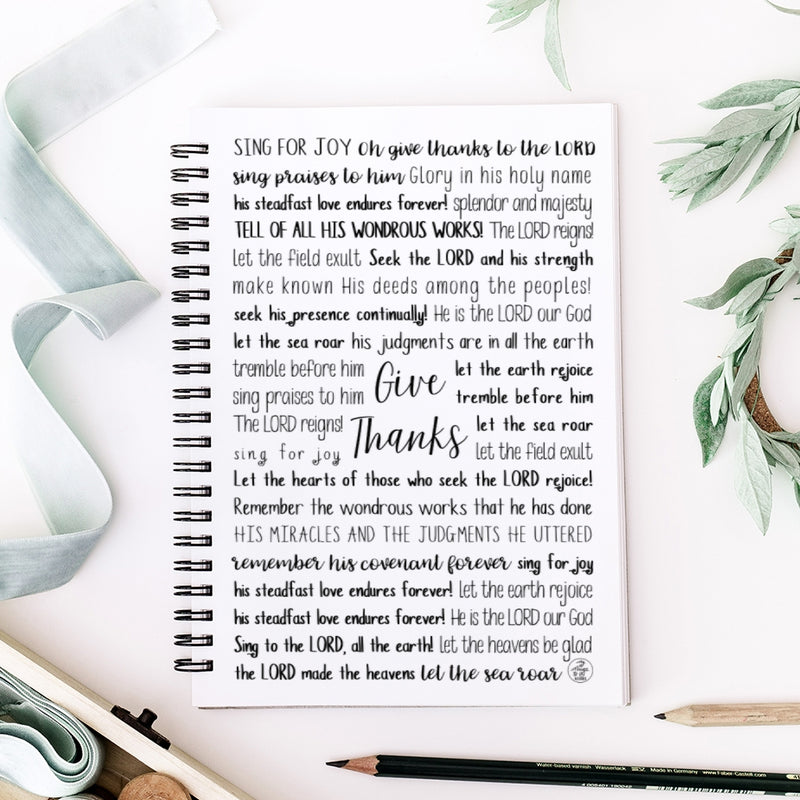 SING FOR JOY Oh give thanks to the LORD
sing praises to him Glory in his holy name
his steadfast love endures forever! splendor and majesty
TELL OF ALL HIS WONDROUS WORKS! The LORD reigns!
let the field exult Seek the LORD and his strength
make known His deeds among the peoples!
seek his presence continually! He is the LORD our God
let the sea roar his judgments are in all the earth
tremble before him let the earth rejoice
sing praises to him Give tremble before him
The LORD reigns! let the sea roar
sing for joy Thanks let the field exult
Let the hearts of those who seek the LORD rejoice!
Remember the wondrous works that he has done
HIS MIRACLES AND THE JUDGMENTS HE UTTERED
remember his covenant forever sing for joy
his steadfast love endures forever! let the earth rejoice
his steadfast love endures forever! He is the LORD our God
Sing to the LORD, all the earth! let the heavens be glad
the LORD made the heavens let the sea roar
Water-based varnish Wasserlack Made in Germany www.Faber-Castell.com